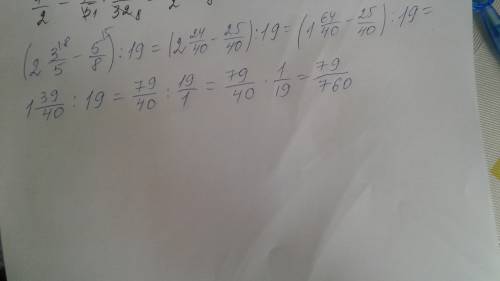 (2 3/5 - 5/8) : 19 = (2 24/40 - 25/40) : 19 = (1 64/40 - 25/40) : 19 =
1 39/40 : 19 = 79/40 : 19/1 = 79/40 · 1/19 = 79/760